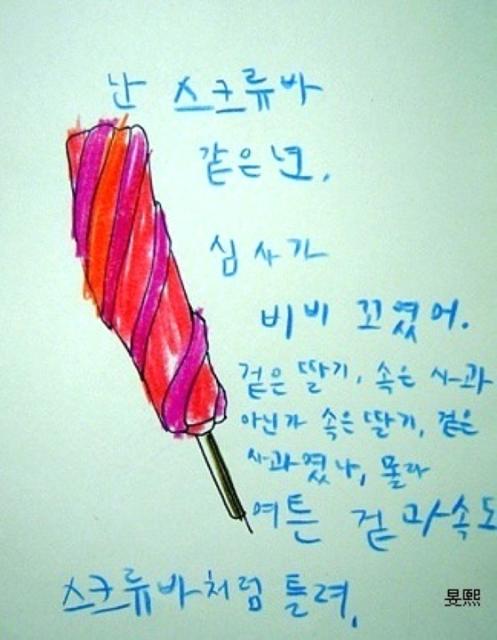 난 스크류바
같은 년,
심사가
비비 꼬였어.
겉은 딸기, 속은 사과
아닌가 속은 딸기, 겉은
사과였나, 몰라
여튼 겉과 속도
스크류바처럼 틀려,
旻熙